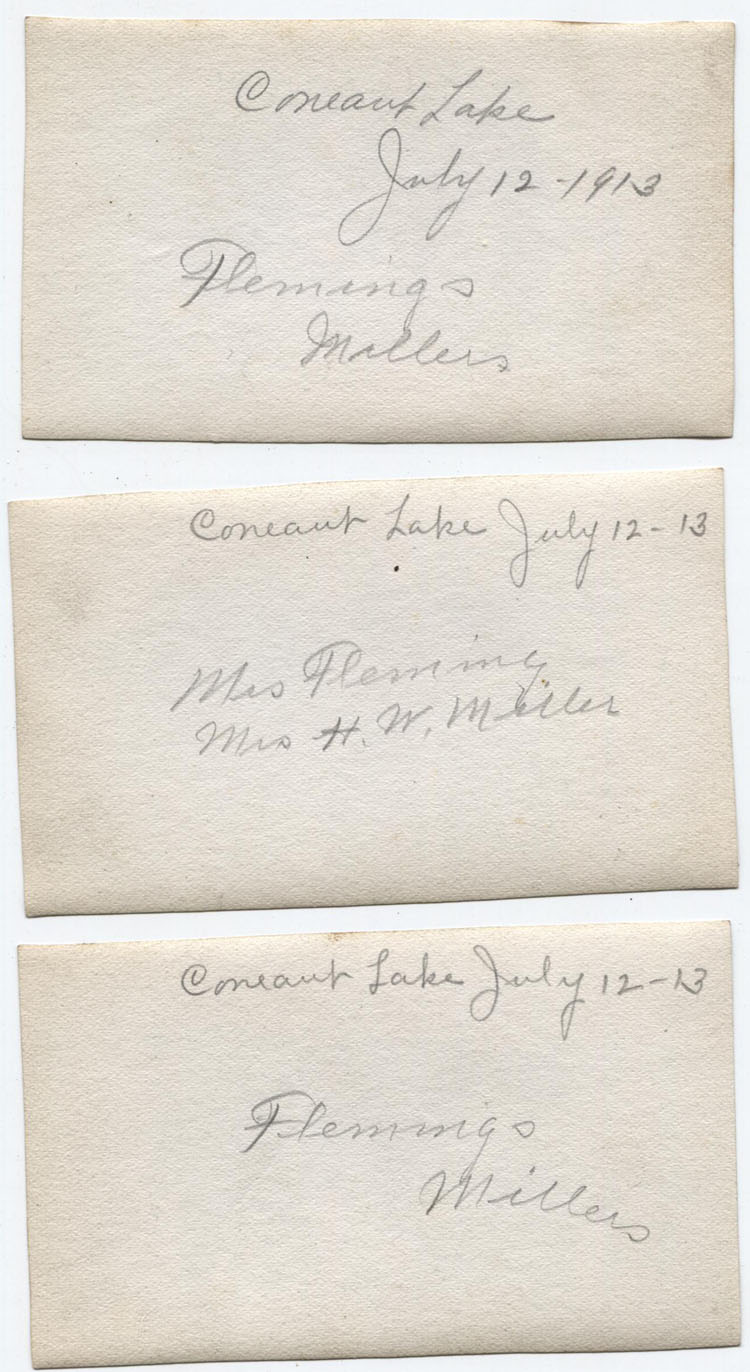 Coneaut Lake
July 12-1913
Flemings
Millers
Coneaut Lake July 12-13
Mrs Fleming
Mrs H. W. Miller
Coneaut Lake July 12-13
Flemings
Millers